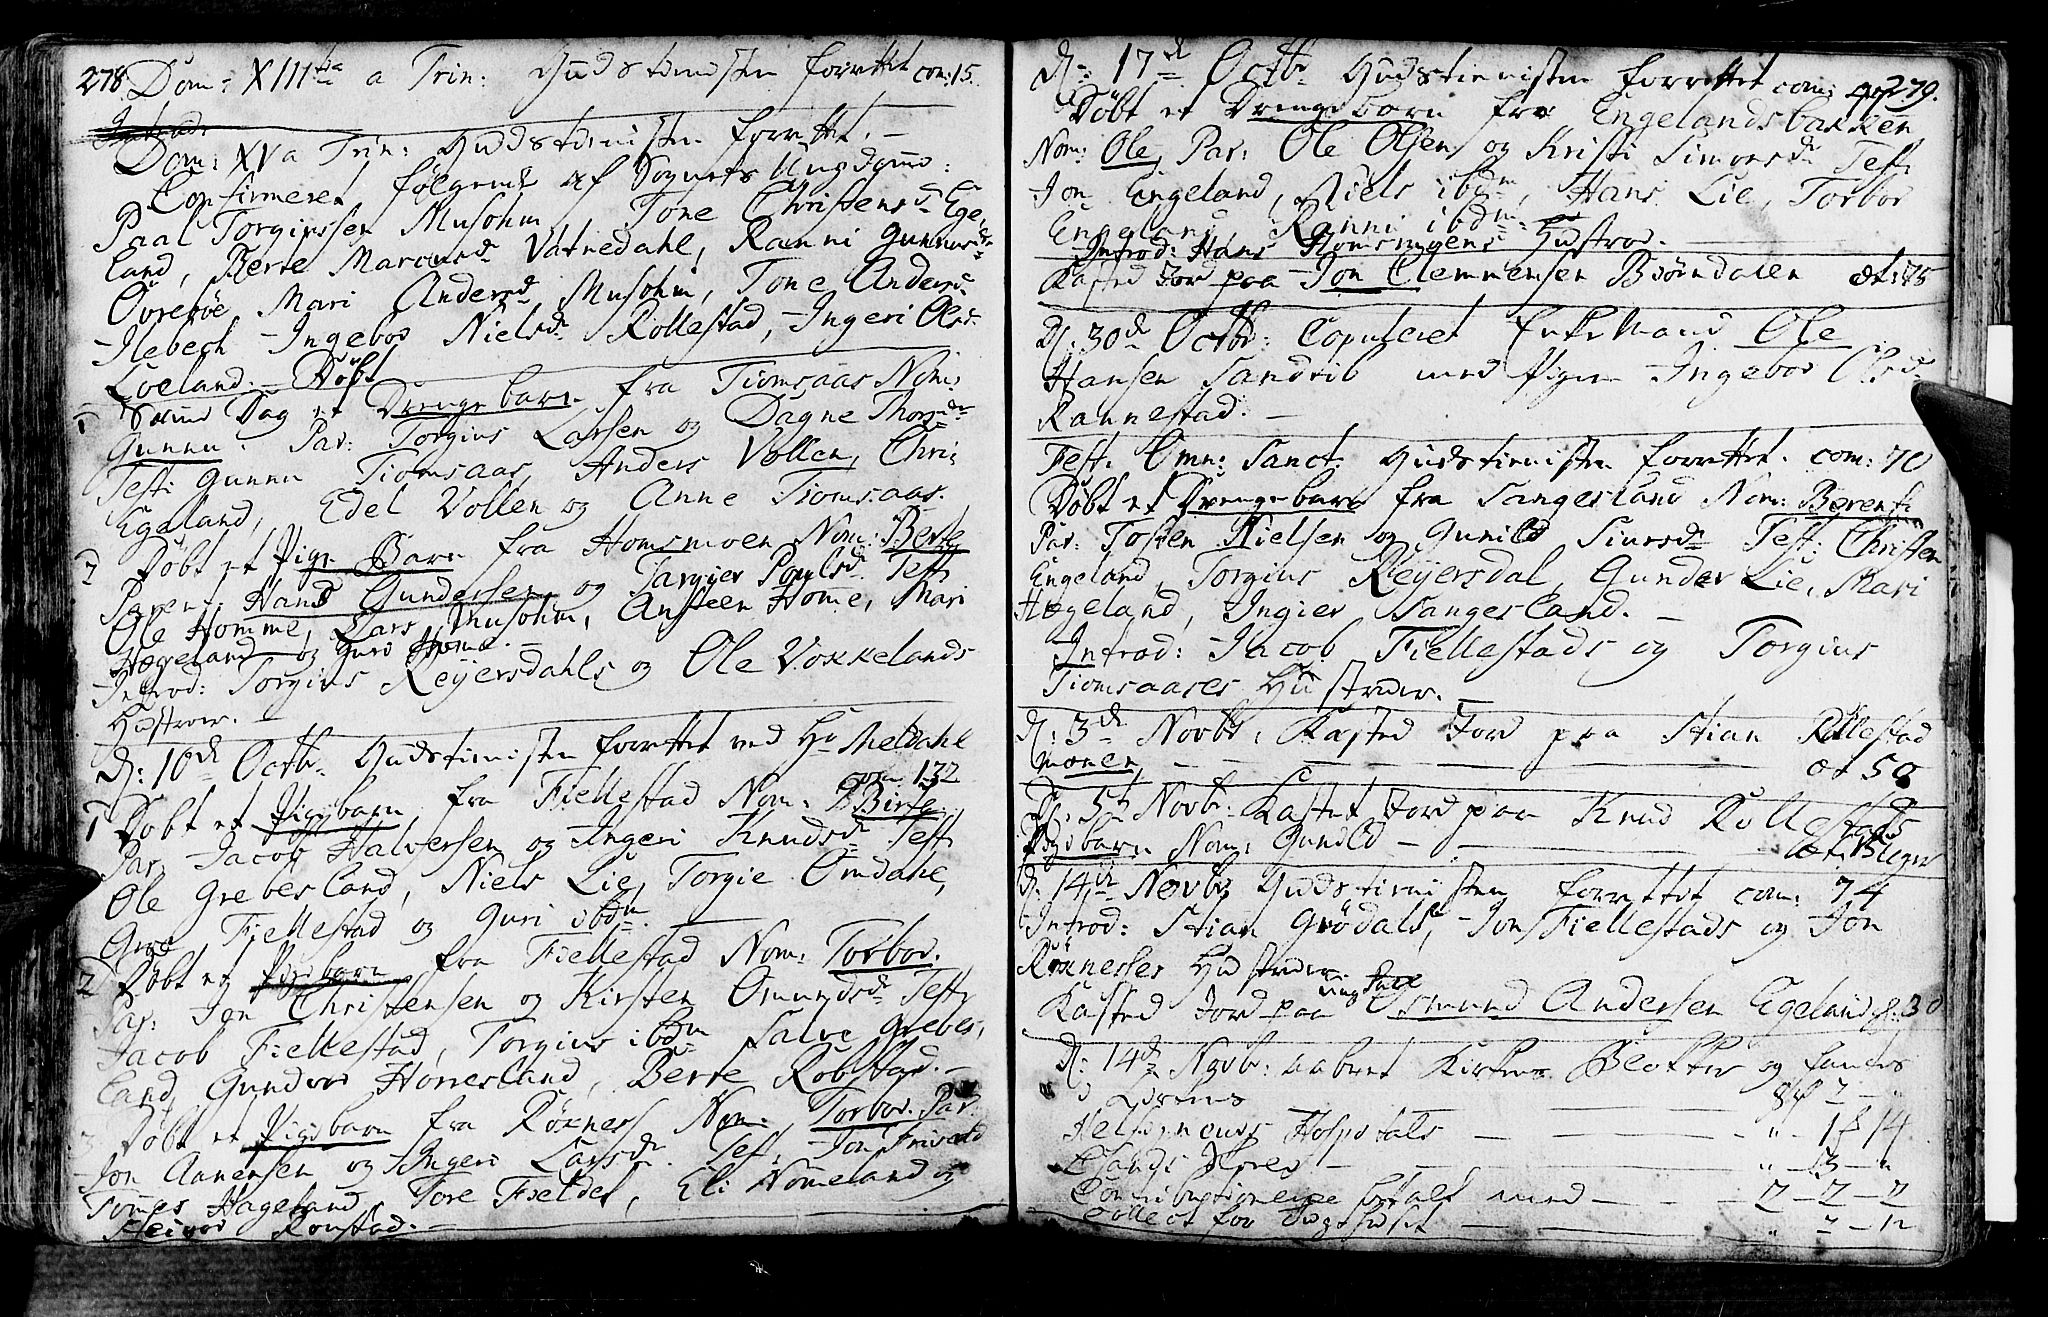 278. Dom: XIII ta a Trin: Gudstienisten forrettet com: 15.
Dom: XV a Trin: Gudstienisten forrettet. —
Confirmeret følgende af Sognets Ungdom:
Paal Torgiussen Musohm, Tone Christensd. Ege,
land, Berte Marcusd. Vatnedahl, Ranni Gunnusd.
Øvrebøe Mari Andersd. Musohm, Tone Andersd.
Ilebech Ingebor Nielsd. Rollestad, Ingeri Olsd.
Loeland. — Døbt
1 Samme Dag et Drengebarn fra Tiomsaas Nom:
Gunnu. Par: Torgius Larsen og Dagne Thorsd.
Test: Gunnu Tiomsaas, Anders Vollen, Chri,
Egeland, Edel Vollen og Anne Tiomsaas.
2 Døbt et Pige Barn fra Homsmoen Nom: Berte
Paren: Hans Gundersen og Targier Poulsd. Test:
Ole Homme, Lars Musohm, Ansteen Home, Mari
Hægeland og Guro Home. —
Introd: Torgius Reijersdahls og Ole Vokkelands
Hustruer. —
D: 10de Octb. Gudstienisten forrettet ved Hr Meldahl
com 132
1 Døbt et Pigebarn fra Fiellestad Nom: Birte.
Par. Jacob Halversen og Ingeri Knudsd. Test:
Ole Grebesland, Niels Lie, Torgie Omdahl,
Groe Fiellestad og Guri ibdm.
2 Døbt et Pigebarn fra Fiellestad Nom: Torbor.
Par: Jon Christensen og Kirsten Omundsd. Test:
Jacob Fiellestad, Torgius ibdm Salve Grebes,
land, Gundvor Honnesland, Berte Robstad. —
3 Døbt et Pigebarn fra Røxnes Nom: Torbor. Par.
Jon Aanensen og Ingeri Larsd. Test: Jon
Tomes Hageland, Tore Fieldet, Eli Nomeland og
Ronstad. —
D: 17de Octbr Gudstienisten forrettet com: 279.
Døbt et Drengebarn fra Engelandsbakken
Nom: Ole Par: Ole Olsen og Kristi Simonsd. Test:
Jon Engeland, Niels ibdm, Hans Lie, Torbor
Engeland Ranni ibdm. —
Introd: Hans Homsmoens Hustroe. —
Kasted Jor paa Jon Clemmensen Biørndalen æt: 75
D: 30de Octbr: Copuleret Enke Mand Ole
Hansen Sandrib med Pigen Ingebor Olsd.
Rannestad. —
Fest. Omn: Sanct. Gudstienisten forrettet. com: 70
Døbt et Drengebarn fra Sangesland Nom: Berent.
Par: Tosten Nielsen og Gunild Siursd. Test: Christen
Engeland, Torgius Reijersdal, Gunder Lie, Mari
Hægeland, Ingier Sangesland. —
Introd: Jacob Fiellestads og Torgius
Tiomsaases Hustruer. —
D: 3de Novbr, Kasted Jord paa Stian Rollestad
monen, — — — æt 50
D: 5te Novbr: Kastet Jord paa Knud Rollestads
Pigebarn Nom: Gunild — — æt. Uger
D. 14de Novbr Gudstienisten forrettet com: 74
Introd: Stian Grødals, Jon Fiellestads og Jon
Røxnesses Hustruer.
ung Karl
Kasted Jord paa Osmund Andersen Egeland æt: 30
D: 14de Novbr: aabnet Kirkens Blokker og fandes
i Kirkens 2 —
Helsignens Hospitals — — — " - 1 ß 14
— — — " - 3 - "
Contributionerne betalt med — — 2 - 2 - 2
Collect for — — " 2 - 12